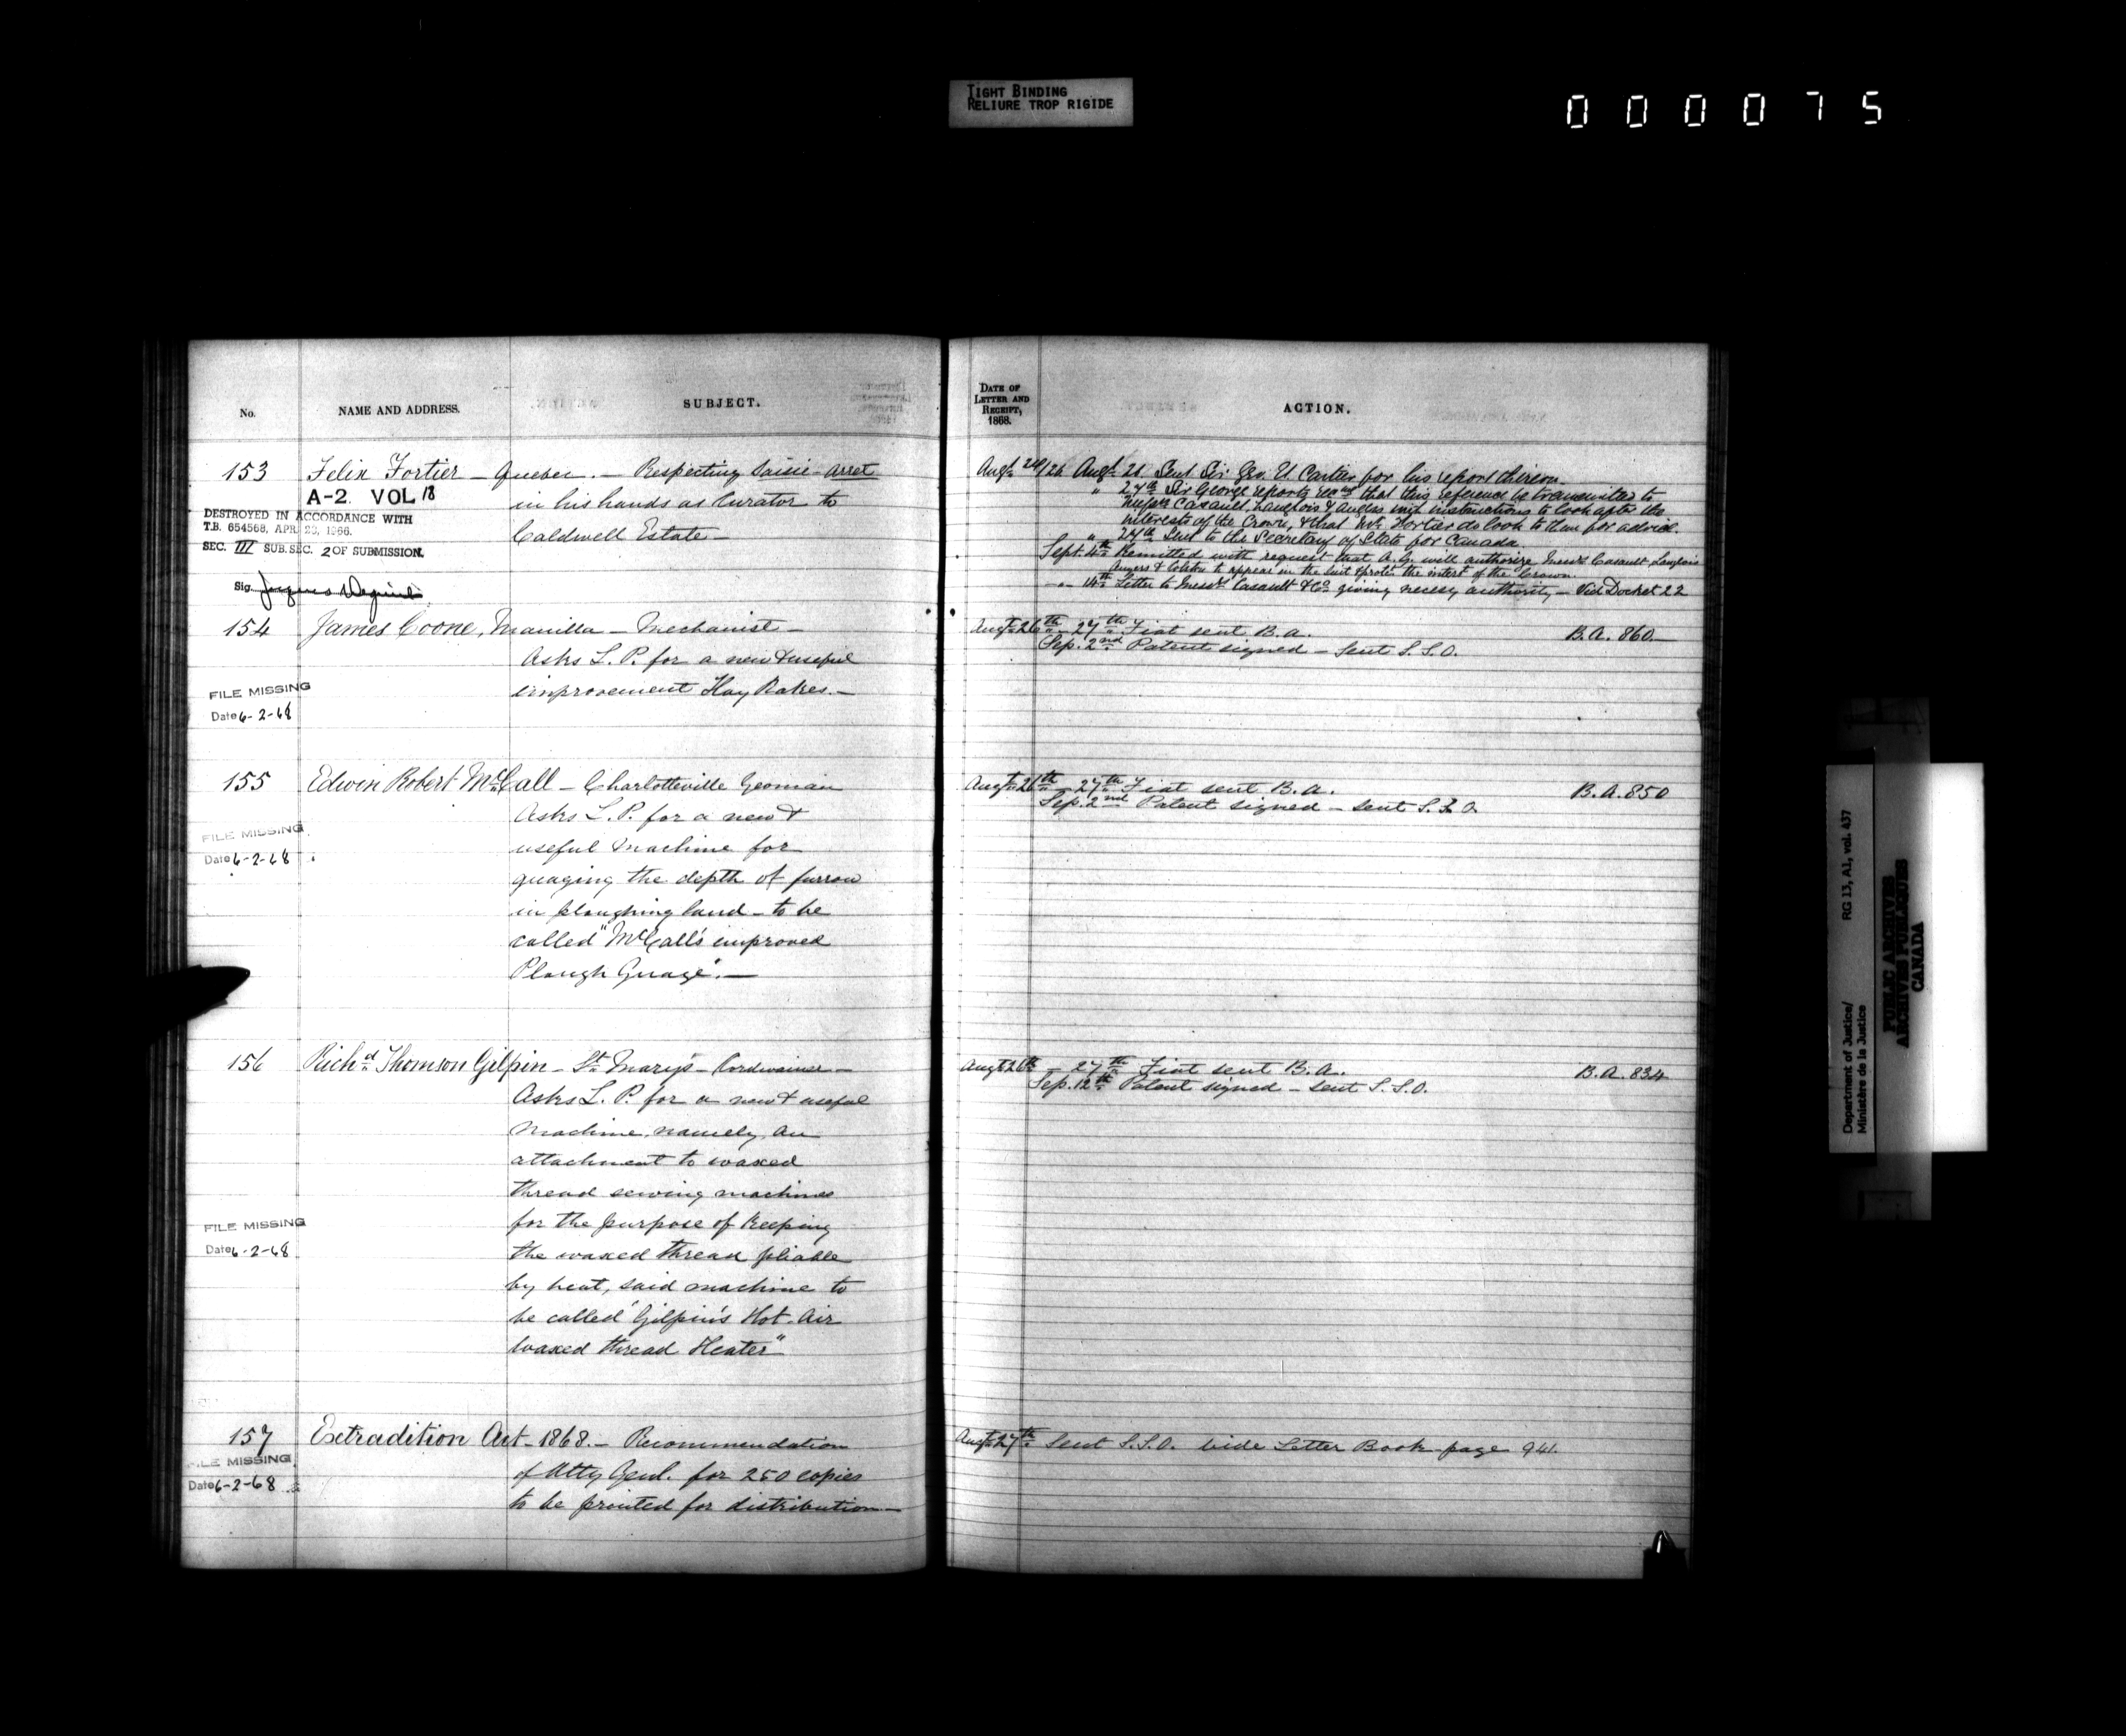 TIGHT BINDING
RELIURE TROP RIGIDE
000075
No.
NAME AND ADDRESS.
SUBJECT.
153 Felix Fortier — Quebec. — Respecting Saisie-arret
in his hands as Curator to
Caldwell Estate —
A-2 VOL 18
DESTROYED IN ACCORDANCE WITH
T.B. 654568, APR 23, 1966.
SEC. III SUB. SEC. 2 OF SUBMISSION.
Sig.
154 James Coone, Manilla — Mechanist —
Asks L. P. for a new & useful
improvement Hay Rakes. —
FILE MISSING
Date 6-2-68
155 Edwin Robert McCall — Charlotteville Yeoman
Asks L. P. for a new &
useful Machine for
guaging the depth of furrow
in ploughing land — to be
called "McCall's improved
Plough Guage". —
FILE MISSING
Date 6-2-68
156 Richd Thomson Gilpin — St Mary's — Cordwainer —
Asks L. P. for a new & useful
Machine, namely, an
attachment to waxed
thread sewing machines
for the purpose of Keeping
the waxed thread pliable
by heat, said machine to
be called "Gilpin's Hot Air
waxed thread Heater"
FILE MISSING
Date 6-2-68
157 Extradition Act — 1868. — Recommendation
of Atty Genl. for 250 copies
to be printed for distribution —
FILE MISSING
Date 6-2-68
DATE OF
LETTER AND
RECEIPT,
1868.
ACTION.
Augt 24/26 Augt 26 Sent Sir Geo. E. Cartier for his report thereon.
" 27th Sir George reports that this reference be transmitted to
Messrs Casault, Langlois & Angers with instructions to look after the
interests of the Crown, & that Mr. Fortier do look to them for advice.
" 27th Sent to the Secretary of State for Canada.
Sept. 4th Remitted with request that A. G. will authorize Messrs Casault, Langlois
Angers & Colston to appear in the suit & prott the interst of the Crown.
— " — 14th Letter to Messrs Casault & Co. giving necesy authority — Vide Docket 22
Augt 26th — 27th Fiat sent B. A. B. A. 860 —
Sep. 2nd Patent signed — Sent S. S. O.
Augt 26th — 27th Fiat sent B. A. B. A. 850
Sep. 2nd Patent signed — sent S. S. O.
Augt 26th — 27th Fiat sent B. A. B. A. 834
Sep. 12th Patent signed — sent S. S. O.
Augt 27th Sent S. S. O. vide Letter Book page 941.
Department of Justice/ RG 13, A1, vol. 437
Ministère de la Justice
PUBLIC ARCHIVES
ARCHIVES PUBLIQUES
CANADA